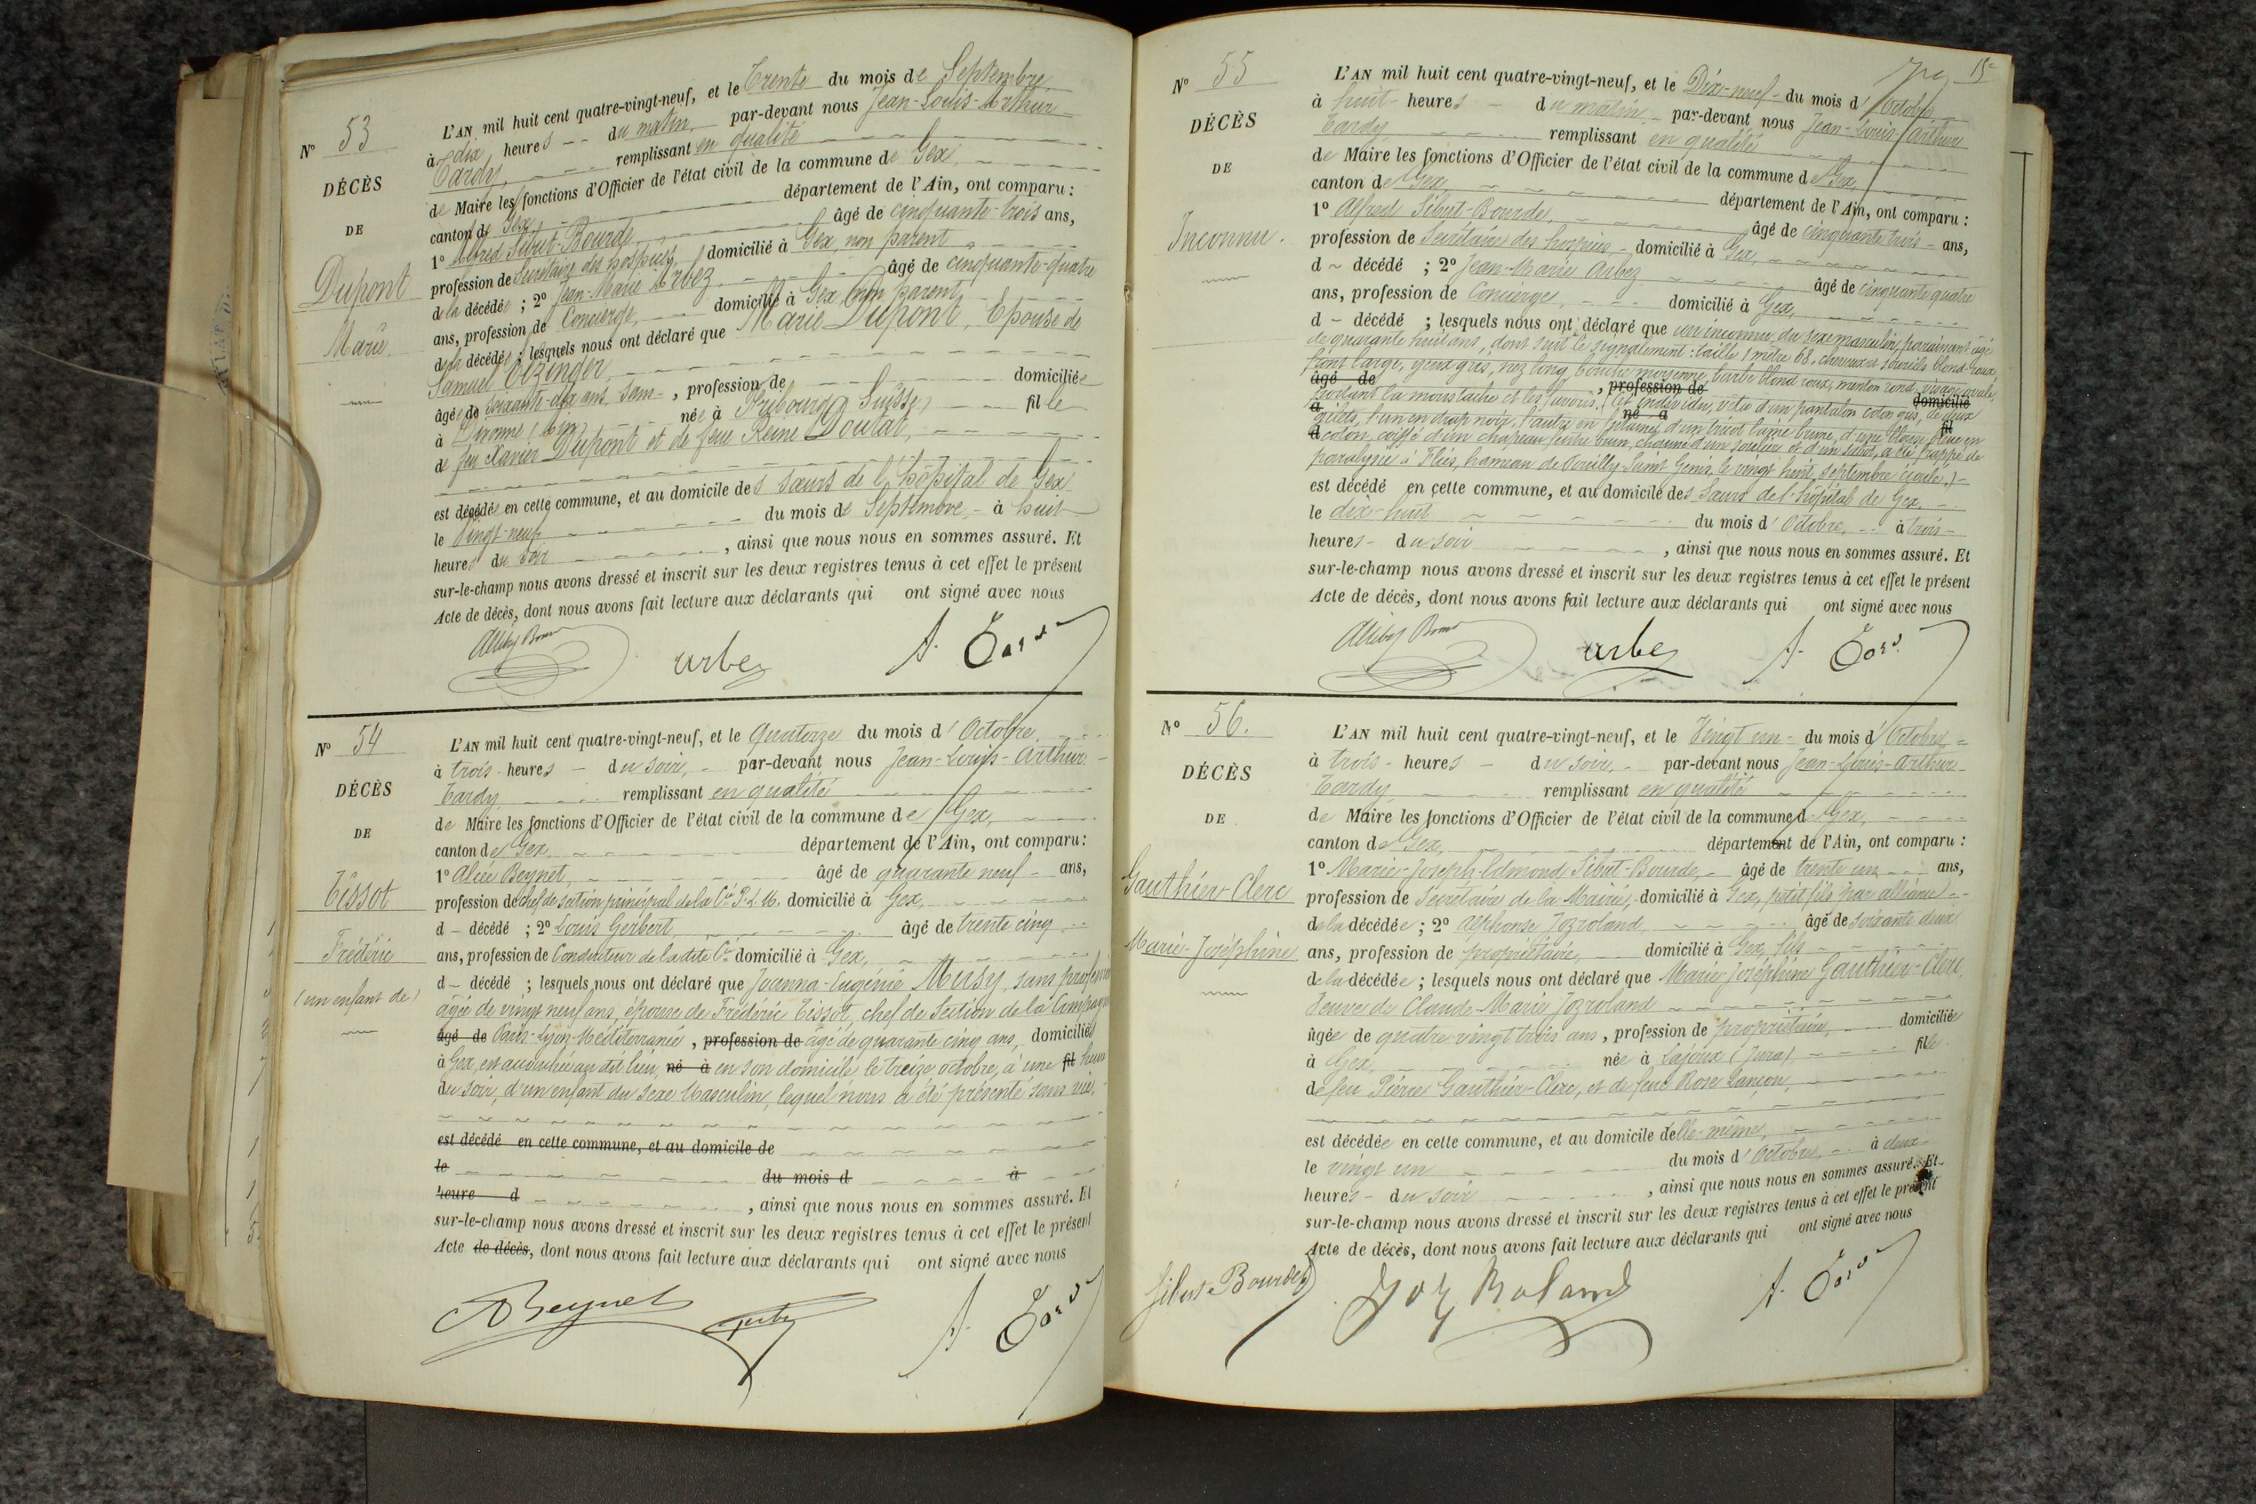 N° 53
DÉCÈS
DE
Dupont
Marie
L'AN mil huit cent quatre-vingt-neuf, et le Trente du mois de Septembre
à dix heures du matin par-devant nous Jean-Louis-Arthur
Tardy, remplissant en qualité
de Maire les fonctions d'Officier de l'état civil de la commune de Gex
canton de Gex département de l'Ain, ont comparu :
1° Alfred Sibut-Bourde, âgé de cinquante-trois ans,
profession de Secrétaire des hospices domicilié à Gex non parent
de la décédée ; 2° Jean-Marie Arbez âgé de cinquante-quatre
ans, profession de Concierge, domicilié à Gex non parent
de la décédée ; lesquels nous ont déclaré que Marie Dupont, Epouse de
Samuel
âgée de soixante-dix ans, sans , profession de domiciliée
à Divonne (Ain) née à Fribourg (Suisse) fille
de feu Xavier Dupont et de feue Reine Doutaz,
est décédée en cette commune, et au domicile des sœurs de l'hôpital de Gex
le vingt-neuf du mois de Septembre à huit
heures du soir , ainsi que nous nous en sommes assuré. Et
sur-le-champ nous avons dressé et inscrit sur les deux registres tenus à cet effet le présent
Acte de décès, dont nous avons fait lecture aux déclarants qui ont signé avec nous
Arbez A. Tardy
N° 54
DÉCÈS
DE
Tissot
Frédéric
(un enfant de)
L'AN mil huit cent quatre-vingt-neuf, et le Quatorze du mois d'Octobre
à trois heures du soir, par-devant nous Jean-Louis-Arthur
Tardy remplissant en qualité
de Maire les fonctions d'Officier de l'état civil de la commune de Gex,
canton de Gex département de l'Ain, ont comparu :
1° Beynet, âgé de quarante neuf ans,
profession de chef de section principal de la Cie P. L. M. domicilié à Gex,
d décédé ; 2° Louis Gerbert, âgé de trente cinq
ans, profession de Conducteur de la dite Cie domicilié à Gex,
d décédé ; lesquels nous ont déclaré que Joanna-Eugénie sans profession
âgée de vingt neuf ans, épouse de Frédéric Tissot, chef de Section de la Compagnie
âgé de Paris-Lyon-Méditerranée, profession de âgé de quarante cinq ans, domiciliés
à Gex, est accouchée au dit lieu, né à en son domicile le treize octobre, à une fil heure
du soir, d'un enfant du sexe Masculin, lequel nous a été présenté sans vie.
est décédé en cette commune, et au domicile de
le du mois d à
heure d , ainsi que nous nous en sommes assuré. Et
sur-le-champ nous avons dressé et inscrit sur les deux registres tenus à cet effet le présent
Acte de décès, dont nous avons fait lecture aux déclarants qui ont signé avec nous
Beynet A. Tardy
15
N° 55
DÉCÈS
DE
Inconnu.
L'AN mil huit cent quatre-vingt-neuf, et le Dix-neuf du mois d'Octobre
à huit heures du matin par-devant nous Jean-Louis-Arthur
Tardy remplissant en qualité
de Maire les fonctions d'Officier de l'état civil de la commune de Gex,
canton de Gex, département de l'Ain, ont comparu :
1° Alfred Sibut-Bourde, âgé de cinquante trois ans,
profession de Secrétaire des hospices domicilié à Gex,
d décédé ; 2° Jean-Marie Arbez âgé de cinquante quatre
ans, profession de Concierge, domicilié à Gex,
d décédé ; lesquels nous ont déclaré que un inconnu, du sexe masculin, paraissant âgé
de quarante huit ans, dont suit le signalement : taille 1 mètre 68, cheveux et sourcils blond roux
front large, yeux gris, nez long, bouche moyenne, barbe blond roux, menton rond, visage ovale,
âgé de , profession de domicilié
portant la moustache et les favoris. (Cet individu, vêtu d'un pantalon coton gris, de deux
à né à fil
gilets, l'un en drap noir, l'autre en d'un tricot laine brune, d'une blouse bleue en
d coton, coiffé d'un chapeau feutre brun, chaussé d'un soulier et d'un sabot, a été frappé de
paralysie à Flies, hameau de Pouilly-Saint Genis, le vingt huit septembre écoulé.)
est décédé en cette commune, et au domicile des Sœurs de l'hôpital de Gex,
le dix-huit du mois d'Octobre, à trois
heures du soir , ainsi que nous nous en sommes assuré. Et
sur-le-champ nous avons dressé et inscrit sur les deux registres tenus à cet effet le présent
Acte de décès, dont nous avons fait lecture aux déclarants qui ont signé avec nous
Arbez A. Tardy
N° 56.
DÉCÈS
DE
Gauthier-Clerc
Marie-Joséphine
L'AN mil huit cent quatre-vingt-neuf, et le Vingt un du mois d'Octobre
à trois heures du soir, par-devant nous Jean-Louis-Arthur
Tardy remplissant en qualité
de Maire les fonctions d'Officier de l'état civil de la commune de Gex,
canton de Gex, département de l'Ain, ont comparu :
1° Marie-Joseph-Edmond Sibut-Bourde, âgé de trente un ans,
profession de Secrétaire de la Mairie, domicilié à Gex, petit fils par alliance
de la décédée ; 2° Alphonse Jozroland âgé de soixante deux
ans, profession de propriétaire, domicilié à Gex, fils
de la décédée ; lesquels nous ont déclaré que Marie Joséphine Gauthier-Clerc
Veuve de Claude-Marie Jozroland
âgée de quatre vingt trois ans, profession de propriétaire, domiciliée
à Gex, née à Lajoux (Jura), fille
de feu Pierre Gauthier-Clerc, et de feue Rose Lançon,
est décédée en cette commune, et au domicile d'elle-même,
le vingt un du mois d'Octobre à deux
heures du soir , ainsi que nous nous en sommes assuré. Et
sur-le-champ nous avons dressé et inscrit sur les deux registres tenus à cet effet le présent
Acte de décès, dont nous avons fait lecture aux déclarants qui ont signé avec nous
Sibut-Bourde Joz Roland A. Tardy